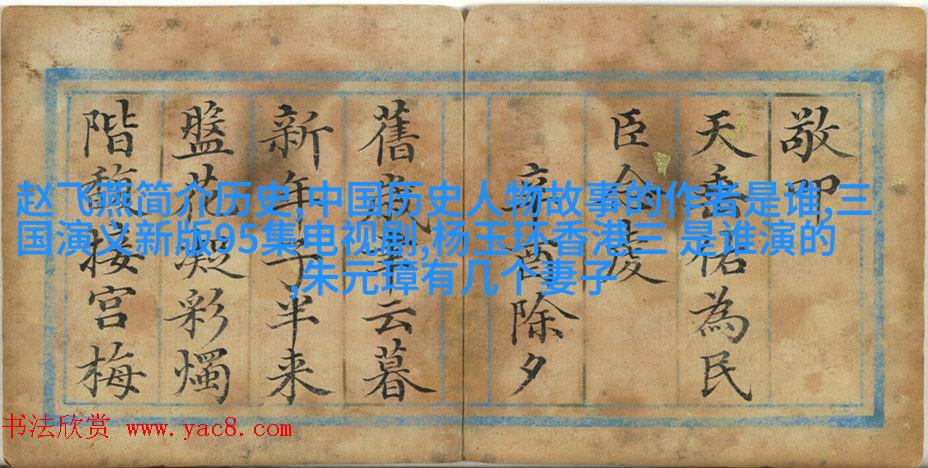 赵飞燕简介历史,中国历史人物故事的作者是谁,三
国演义新版95集电视剧,杨玉环香港三 是谁演的
,朱元璋有几个妻子
敬
天垂祐為民
臣令虔
辛酉除夕
舊歲云暮
新年子半来
盤花凝彩燭
階馥接宮梅
书法欣赏 www.yac8.com